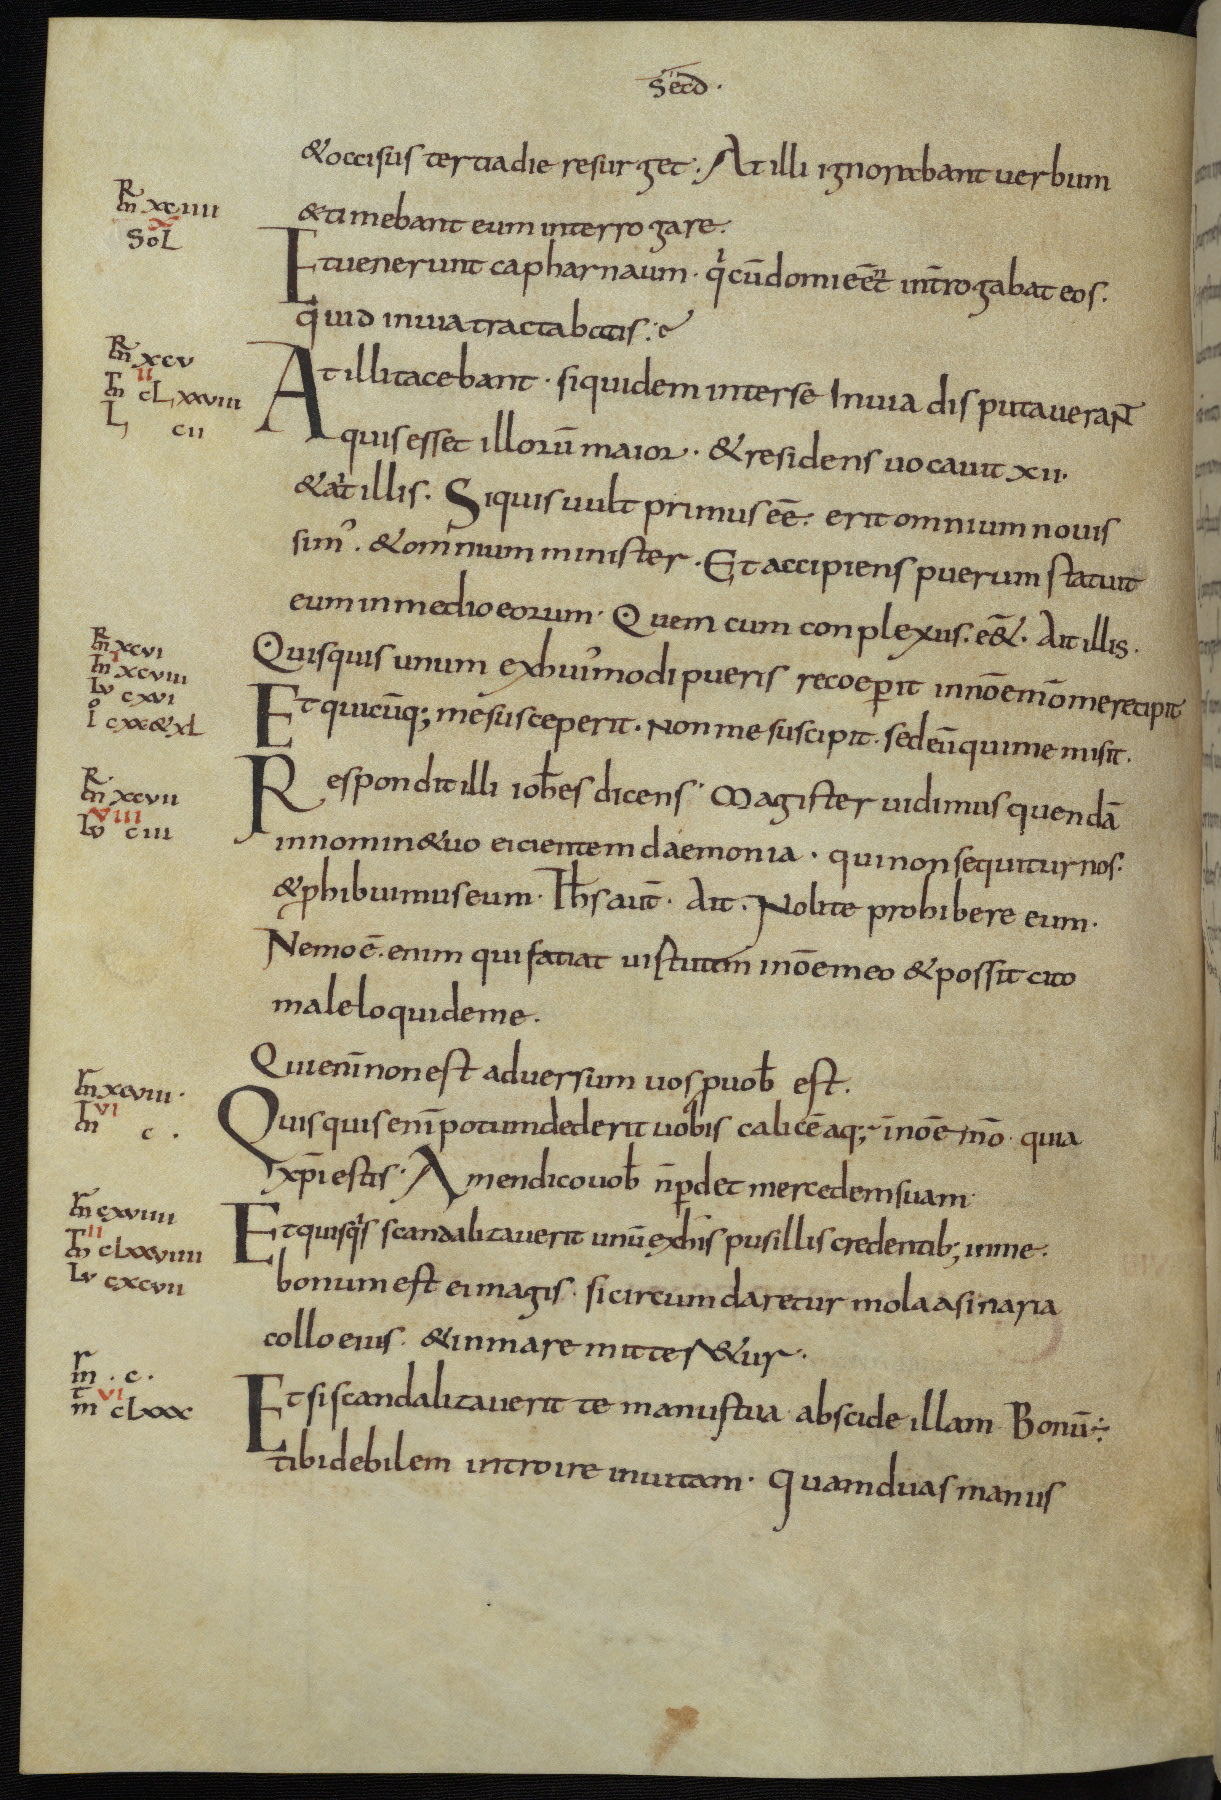 Secd.
&occisus tertia die resurget. At illi ignorabant uerbum
R
m xciiii
x
Sol
&timebant eum interrogare.
Et uenerunt capharnaum. qi cū domi eēnt int̄rogabat eos.
quid in uia tractabatis.
R
m xcv
II
m cLxxviii
L cii
At illi tacebant. siquidem inter se In uia disputaueraNT
quis esset illorū maior. & residens uocauit xii.
&ait illis. Siquis uult primus eē. erit omnium nouis
sim'. & omnium minister. Et accipiens puerum statuit
eum in medio eorum. Quem cum conplexus. eē&. Ait illis.
R
m xcvi
m xcviii
Lu cxvi
Io cxx&xL
Quisquis unum exhui'modi pueris recoeperit in nōe mō me recipit
Et quicūq; me susceperit. Non me suscipit. sed eū qui me misit.
R
m xcvii
VIII
Lu ciii
Respondit illi ioh̄es dicens. Magister uidimus quendā
in nomin&uo eicientem daemonia. qui non sequitur nos.
&phibuimus eum. Ih̄s aut̄. Ait. Nolite prohibere eum.
Nemo ē. enim qui fatiat uirtutem in nōe meo & possit cito
male loqui de me.
Qui eni̅ non est aduersum uos p uob̄ est.
m xcviii.
VI
m c.
Quisquis eni̅ potum dederit uobis calicē aq; in nōe mō quia
xp̄i estis. Amen dico uob̄ n̄ pdet mercedem suam
m cxviiii
II
m clxxviiii
Lu cxcvii
Et quisqis scandalizauerit unū ex his pusillis credentib; in me.
bonum est ei magis. si circumdaretur mola asinaria
collo eius. & in mare mitter&ur.
m. c.
VI
m clxxx
Et si scandalizauerit te manus tua abscide illam Bonū÷
tibi debilem introire in uitam. quam duas manus